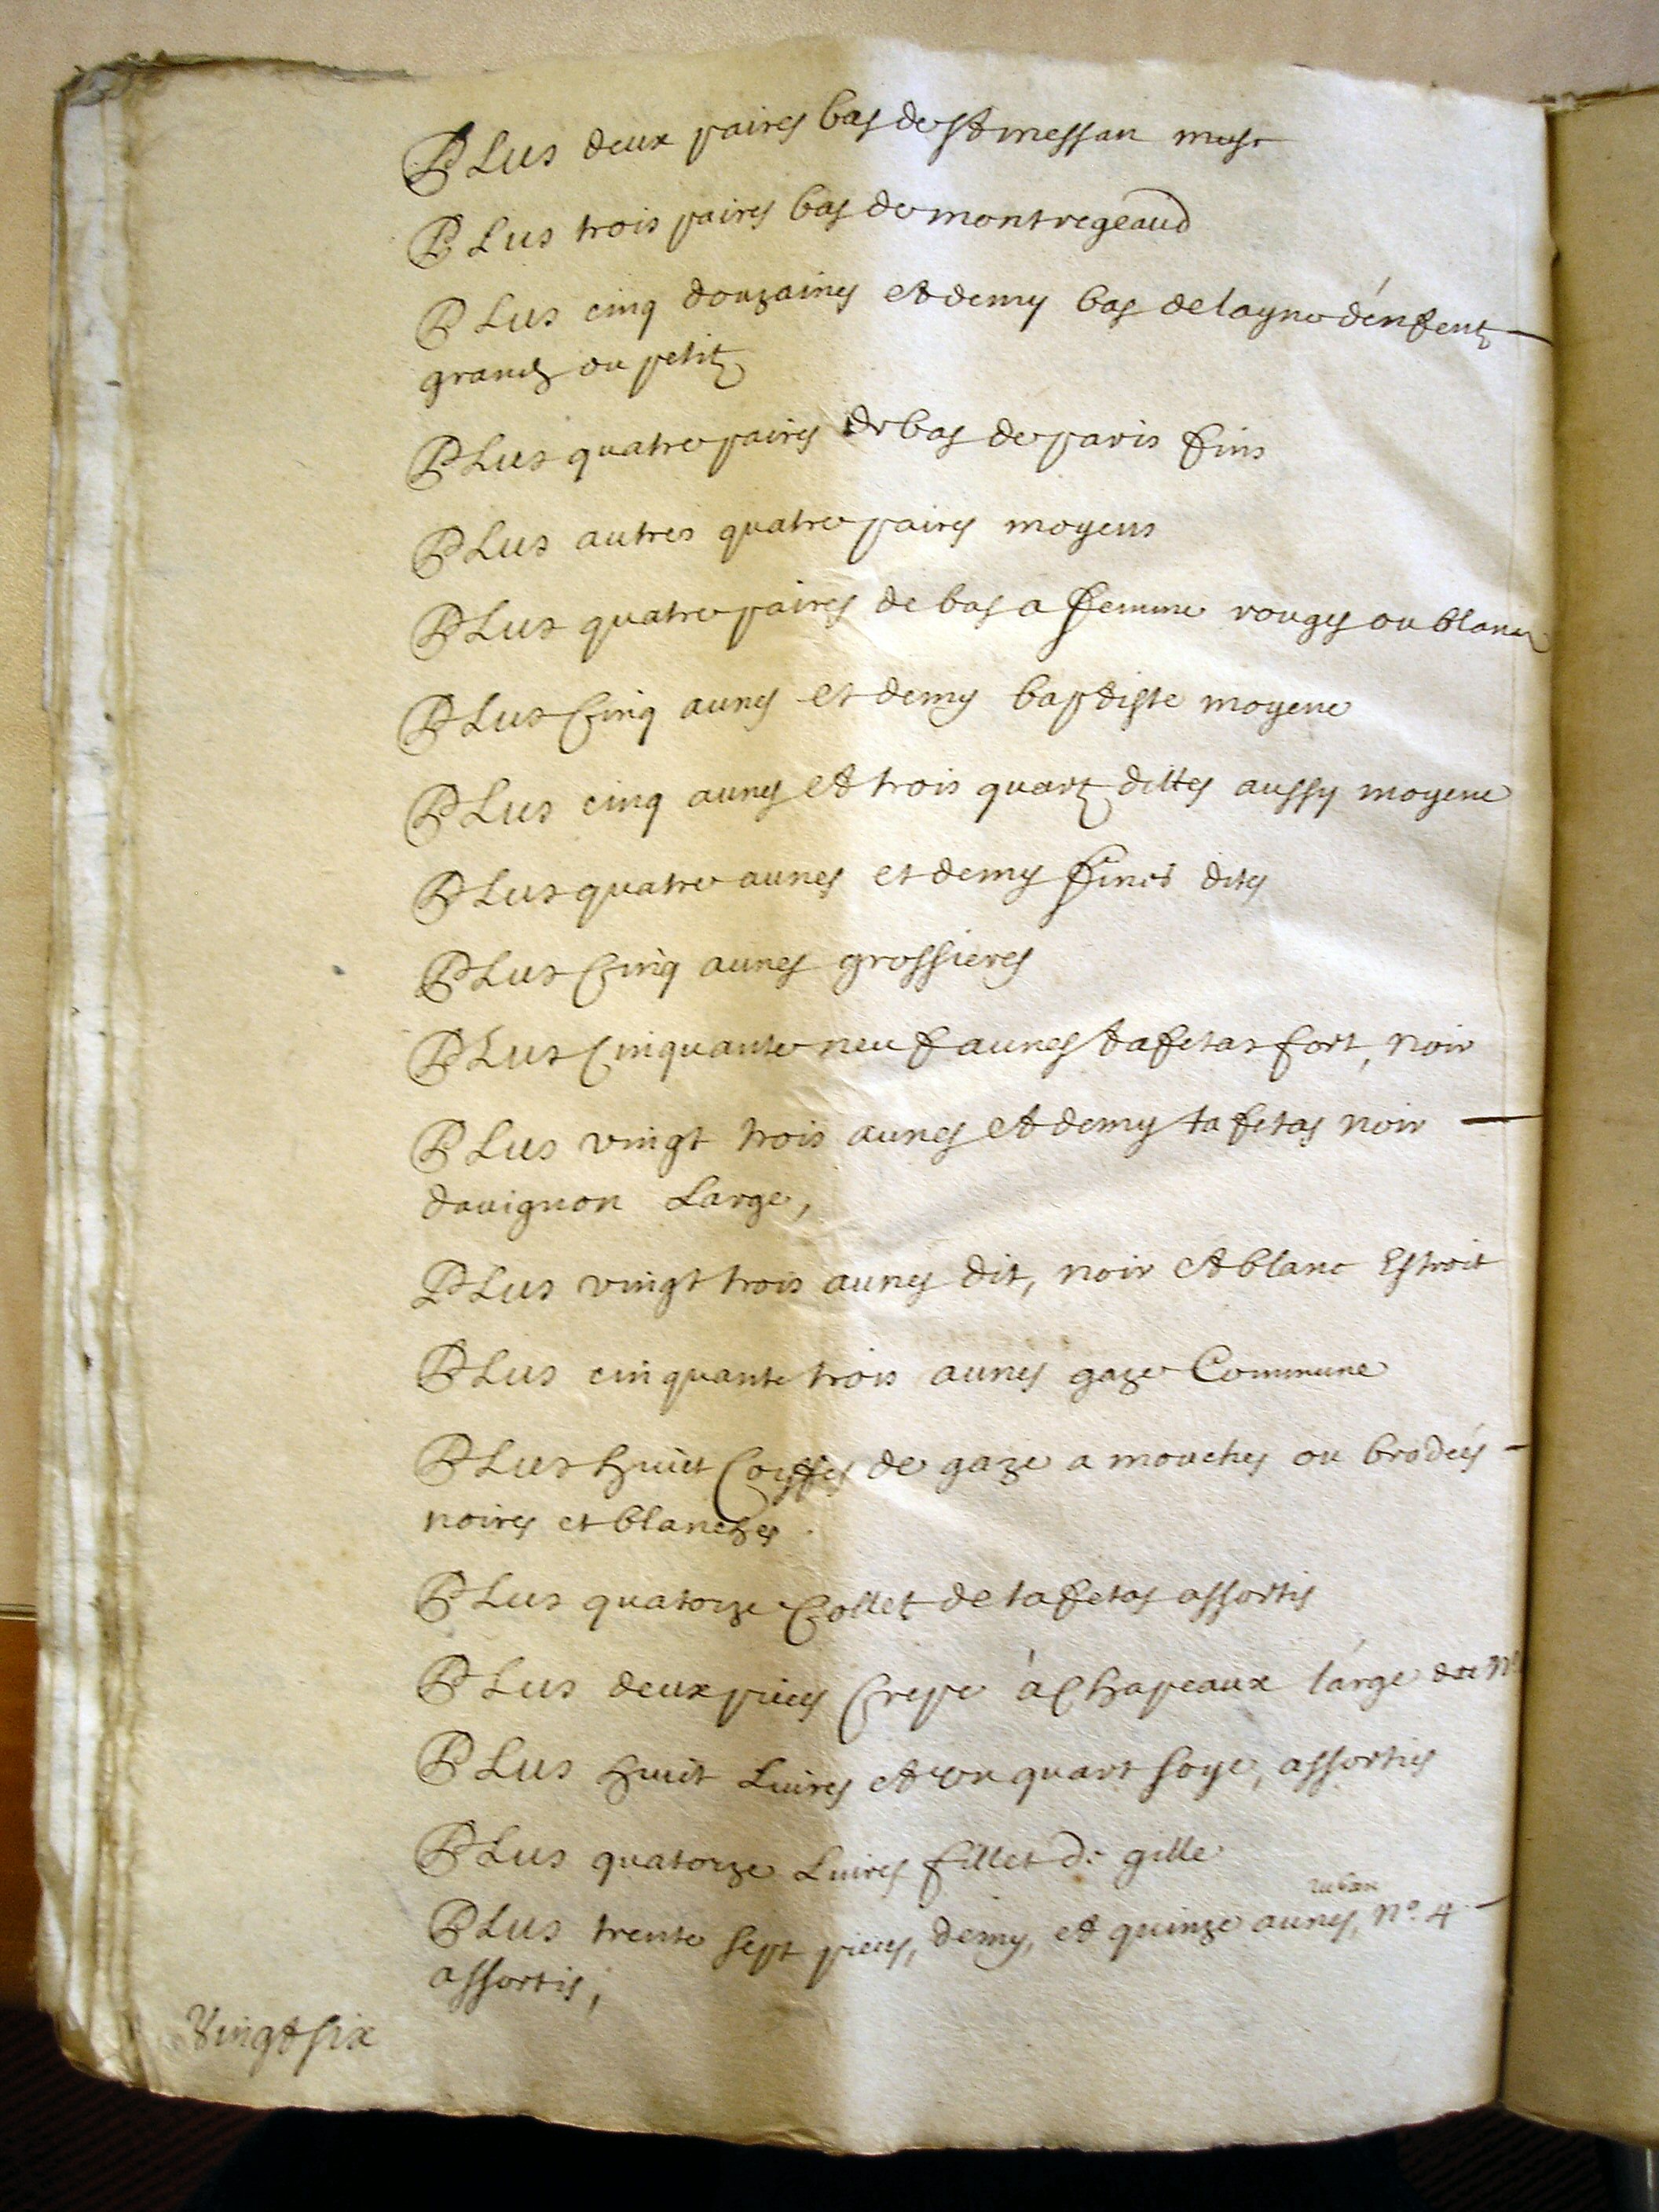 PLus deux paires bas de st messan musc
PLus trois paires bas de montregeaud
PLus cinq douzaines et demy bas de layne d'enfent
grandz ou petitz
PLus quatre paires de bas de paris fins
PLus autres quatre paires moyens
PLus quatre paires de bas a femme rouges ou blancz
PLus Cinq aunes et demy baptiste moyene
PLus cinq aunes et trois quartz dittes aussy moyene
PLus quatre aunes et demy fines dites
PLus Cinq aunes grossieres
PLus Cinquante neuf aunes tafetas fort, noir
PLus vingt trois aunes et demy tafetas noir
davignon Large,
PLus vingt trois aunes dit, noir et blanc Estroit
PLus cinquante trois aunes gaze Commune
PLus huit Coiffes de gaze a mouches ou brodeés
noires et blanches
PLus quatorze Colletz de tafetas assortis
PLus deux pieces Crepe à Chapeaux large
PLus huit Livres et un quart soye, assorties
PLus quatorze Livres fillet de gille
ruban
PLus trente sept pieces, demy, et quinze aunes, n° 4
assortis,
Vingt six